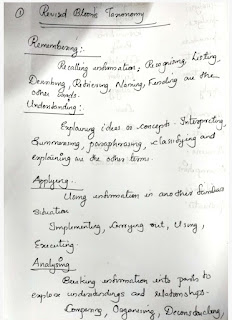 ① Revised Bloom's Taxonomy
Remembering:
Recalling information, Recognising, Listing,
Describing, Retrieving, Naming, Finding are the
other words.
Understanding:
Explaining ideas or concepts. Interpreting,
Summarising, paraphrasing, classifying and
explaining are the other terms.
Applying:
Using information in another familiar
situation
Implementing, Carrying out, Using,
Executing.
Analysing
Breaking information into parts to
explore understandings and relationships.
Comparing, Organising, Deconstructing,